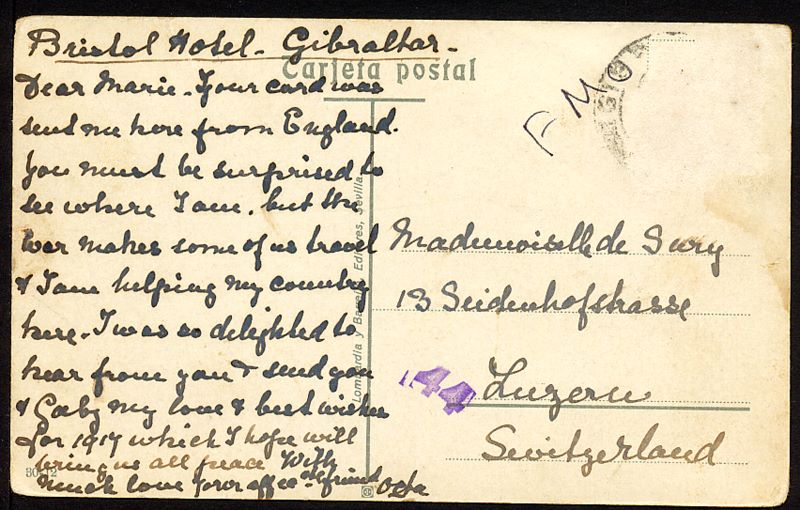 Bristol Hotel - Gibraltar -
Carjeta postal
Dear Marie - Your card was
sent me here from England.
You must be surprised to
see where I am, but the
War makes some of us travel
& I am helping my country
here - I was so delighted to
hear from you & send you
& Gaby my love & best wishes
for 1917 which I hope will
bring us all peace With
much love your affec friend
FM
Mademoiselle de Sury
13 Seidenhofstrasse
Luzern
Switzerland
44
Lombardia y Editores, Sevilla.